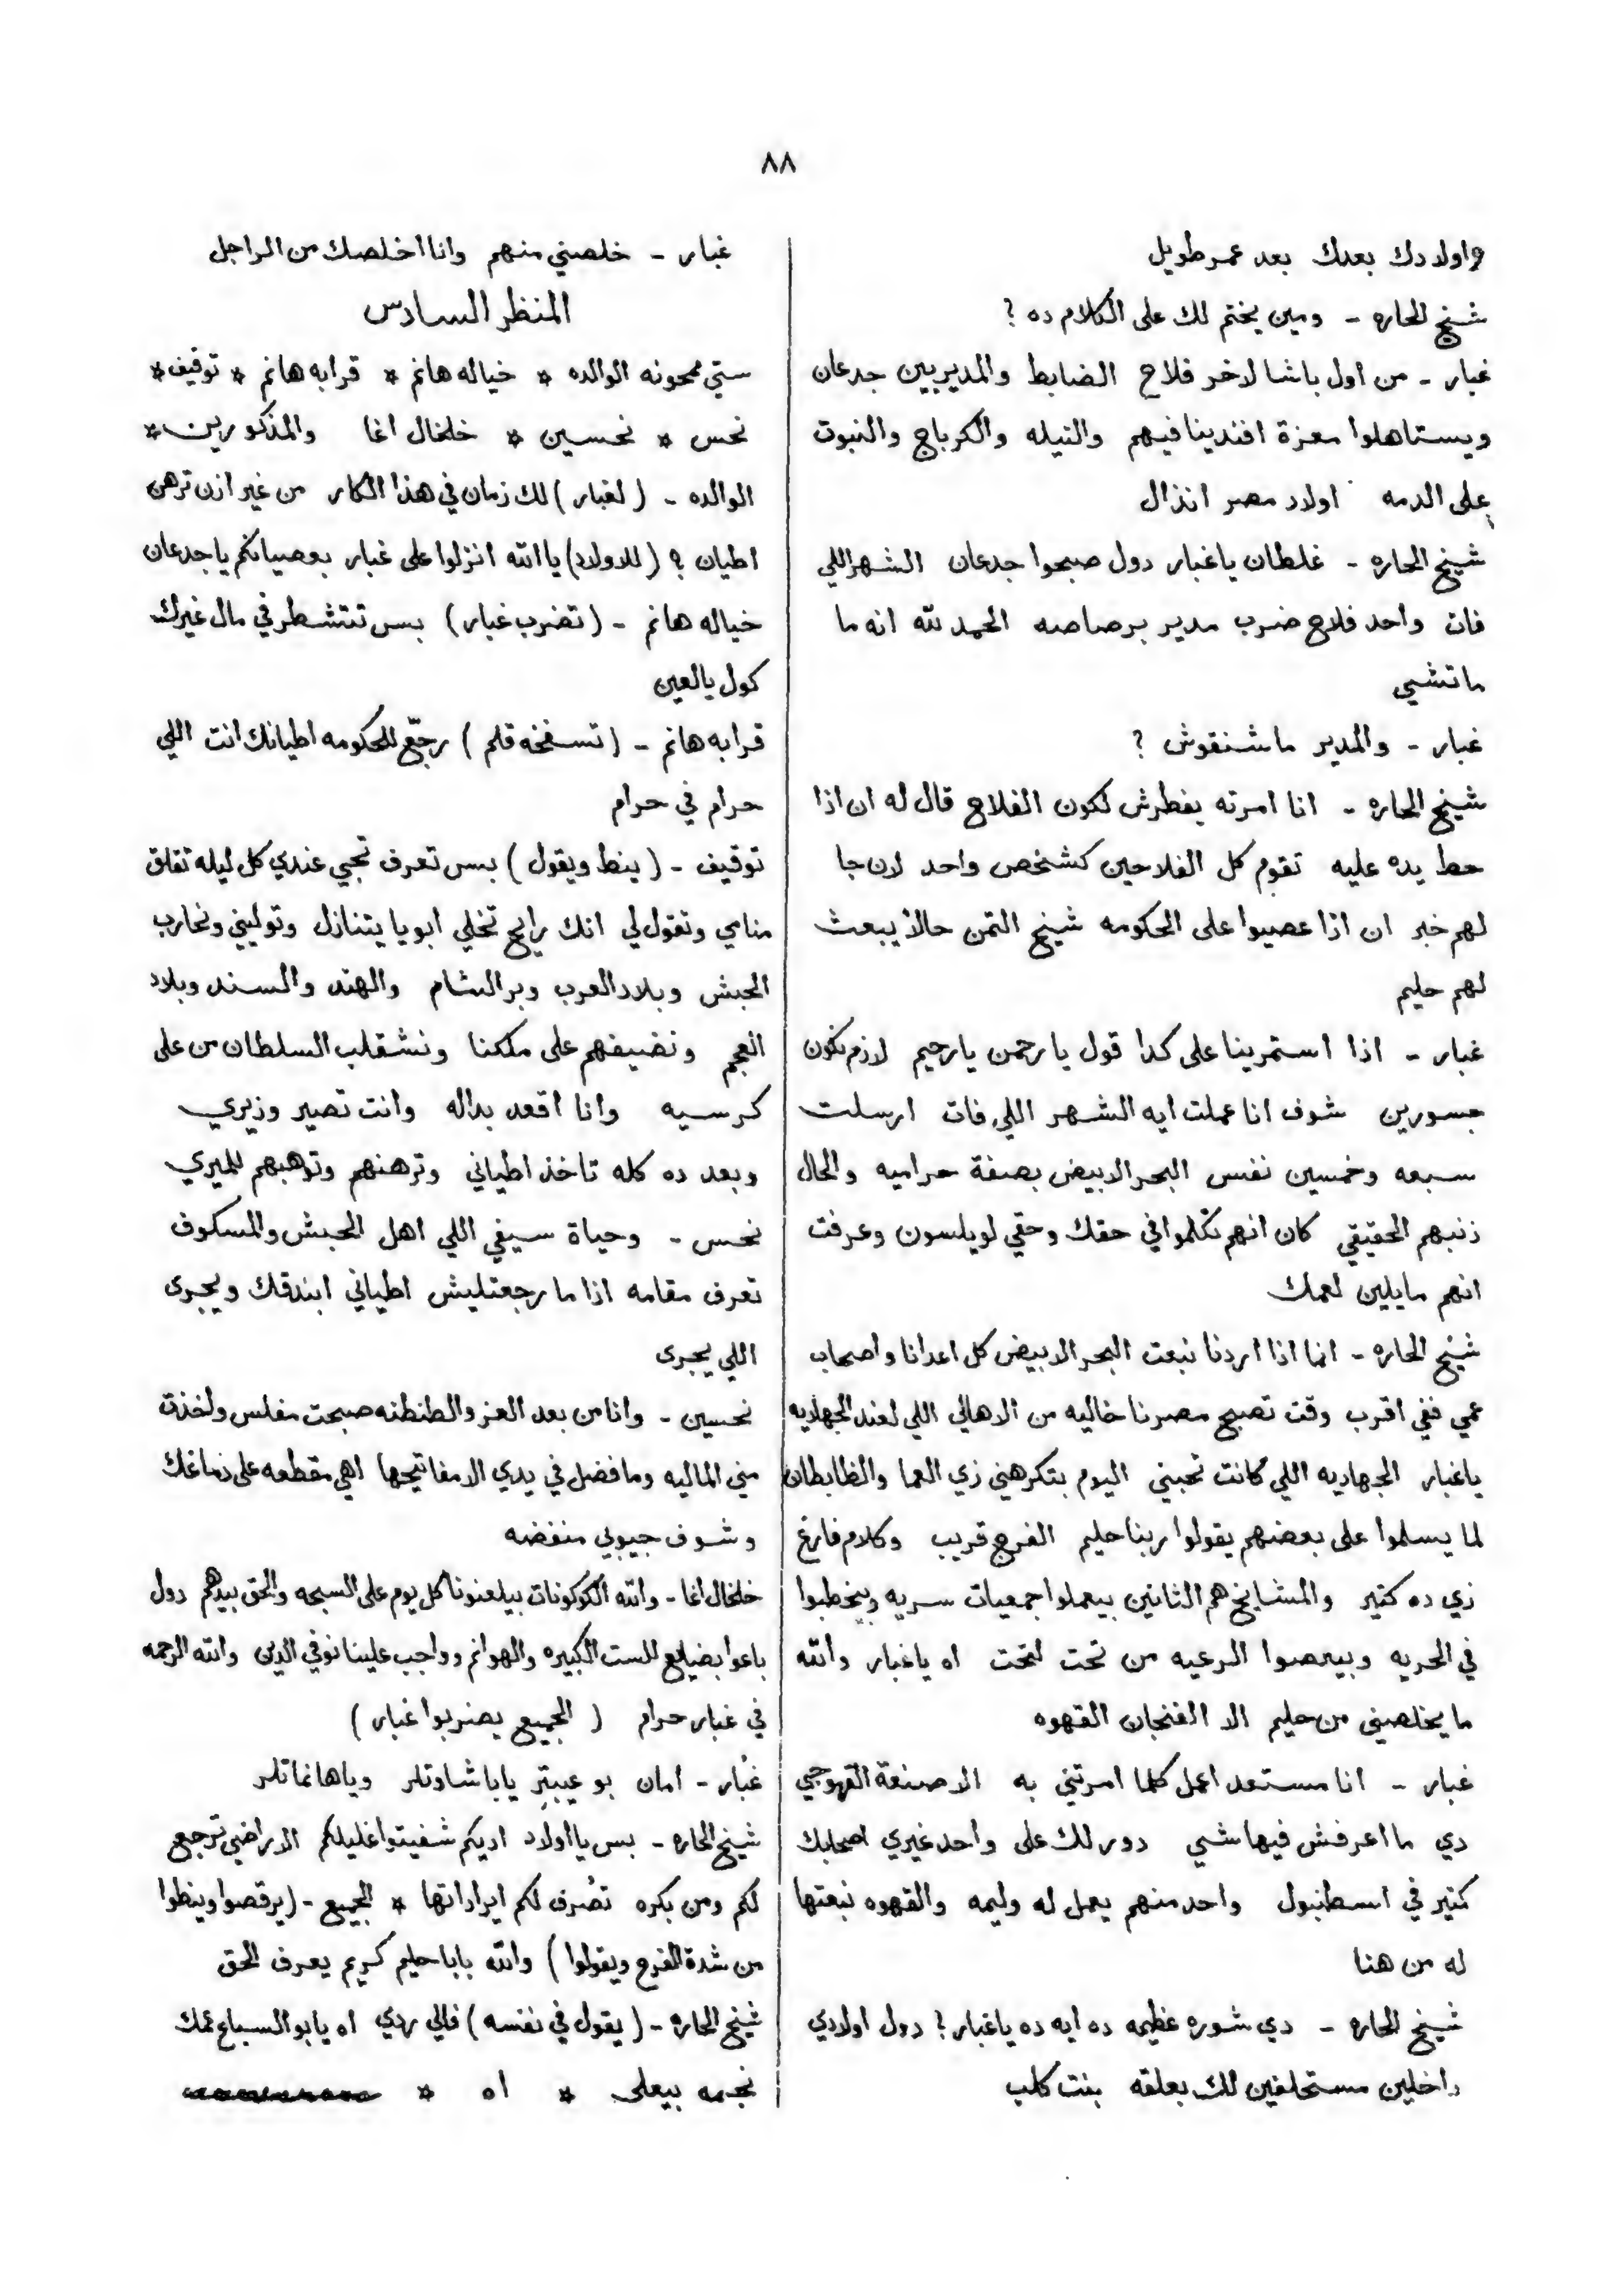 ٨٨
واولادك بعدك بعد عمر طويل
شيخ الحاره - ومين يختم لك على الكلام ده ?
غبار - من اول باشا لاخر فلاح الضابط والمديريين جدعان
ويستاهلوا معزة افندينا فيهم والنيله والكرباج والنبوت
على الدمه اولاد مصر انذال
شيخ الحاره - غلطان ياغبار دول صبحوا جدعان الشهر اللي
فات واحد فلاح ضرب مدير برصاصه الحمد لله انه ما
ماتشي
غبار - والمدير ما شنقوش ?
شيخ الحاره - انا امرته يفطرش لكون الفلاح قال له ان اذا
حط يده عليه تقوم كل الفلاحين كشخص واحد لان جا
لهم خبر ان اذا عصيوا على الحكومه شيخ التمن حالاً يبعث
لهم حليم
غبار - اذا استمرينا على كدا قول يا رحمن يا رحيم لازم نكون
جسورين شوف انا عملت ايه الشهر اللي فات ارسلت
سبعه وخمسين نفس البحر الابيض بصفة حراميه والحال
ذنبهم الحقيقي كان انهم تكلموا في حقك وحقي لويلسون وعرفت
انهم مايلين لعمك
شيخ الحاره - انما اذا اردنا نبعت البحر الابيض كل اعدانا واصحاب
عمي ففي اقرب وقت تصبح مصرنا خاليه من الاهالي اللي لعند الجهاديه
ياغبار الجهاديه اللي كانت تحبني اليوم بتكرهني زي العما والظابطان
لما يسلموا على بعضهم يقولوا ربنا حليم الفرج قريب وكلام فارغ
زي ده كتير والمشايخ هم الثانين بيعملوا جمعيات سريه وبيخطبوا
في الحريه وبيعصوا الرعيه من تحت لتحت اه ياغبار والله
ما يخلصني من حليم الا الفنجان القهوه
غبار - انا مستعد اعمل كلما امرتني به الا صنعة القهوجي
دي ما اعرفش فيها شي دور لك على واحد غيري اصحابك
كتير في اسطنبول واحد منهم يعمل له وليمه والقهوه نبعتها
له من هنا
شيخ الحاره - دي شوره عظيمه ده ايه ده ياغبار ? دول اولادي
داخلين مستحلفين لك بعلقه بنت كلب
غبار - خلصني منهم وانا اخلصك من الراجل
المنظر السادس
ستي ممحونه الوالده * خياله هانم * قرابه هانم * توفيق *
نحس * نحسين * خلخال اغا والمذكورين *
الوالده - ( لغبار ) لك زمان في هذا الكار من غير اذن ترهن
اطيان ? ( للاولاد ) ياالله انزلوا على غبار بعصيانكم ياجدعان
خياله هانم - ( تضرب غبار ) بس تتشطر في مال غيرك
كول يالعين
قرابه هانم - ( تسفخه قلم ) رجّع للحكومه اطيانك انت اللي
حرام في حرام
توقيف - ( ينط ويقول ) بس تعرف تجي عندي كل ليله تقلق
منامي وتقول لي انك رايح تخلي ابويا يتنازل وتوليني ونحارب
الحبش وبلاد العرب وبر الشام والهند والسند وبلاد
العجم ونضيفهم على ملكنا ونشقلب السلطان من على
كرسيه وانا اقعد بداله وانت تصير وزيري
وبعد ده كله تاخذ اطياني وترهنهم وتوهبهم للميري
نحس - وحياة سيفي اللي اهل الحبش والمسكوف
تعرف مقامه اذا ما رجعتليش اطياني ابندقك ويجرى
اللي يجرى
نحسين - وانا من بعد العز والطنطنه صبحت مفلس واخذت
مني الماليه وما فضل في يدي الا مفاتيحها اهي مقطعه على دماغك
وشوف جيوبي منفضه
خلخال اغا - والله الكوكونات بيلعنونا كل يوم على السبحه والحق بيدهم دول
باعوا بضايع للست الكبيره والهوانم وواجب علينا نوفي الدين والله الرحمه
في غبار حرام ( الجميع يضربوا غبار )
غبار - امان بو عيبتر ياباشادتلر وياهانماتلر
شيخ الحاره - بس يااولاد اديكم شفيتوا غليلكم الاراضي ترجع
لكم ومن بكره تصرف لكم ايراداتها * الجميع - ( يرقصوا وينطوا
من شدة الفرح ويقولوا ) والله بابا حليم كريم يعرف الحق
شيخ الحاره - ( يقول في نفسه ) فالي ردي اه يابو السباع عمك
نجمه بيعلى * اه *